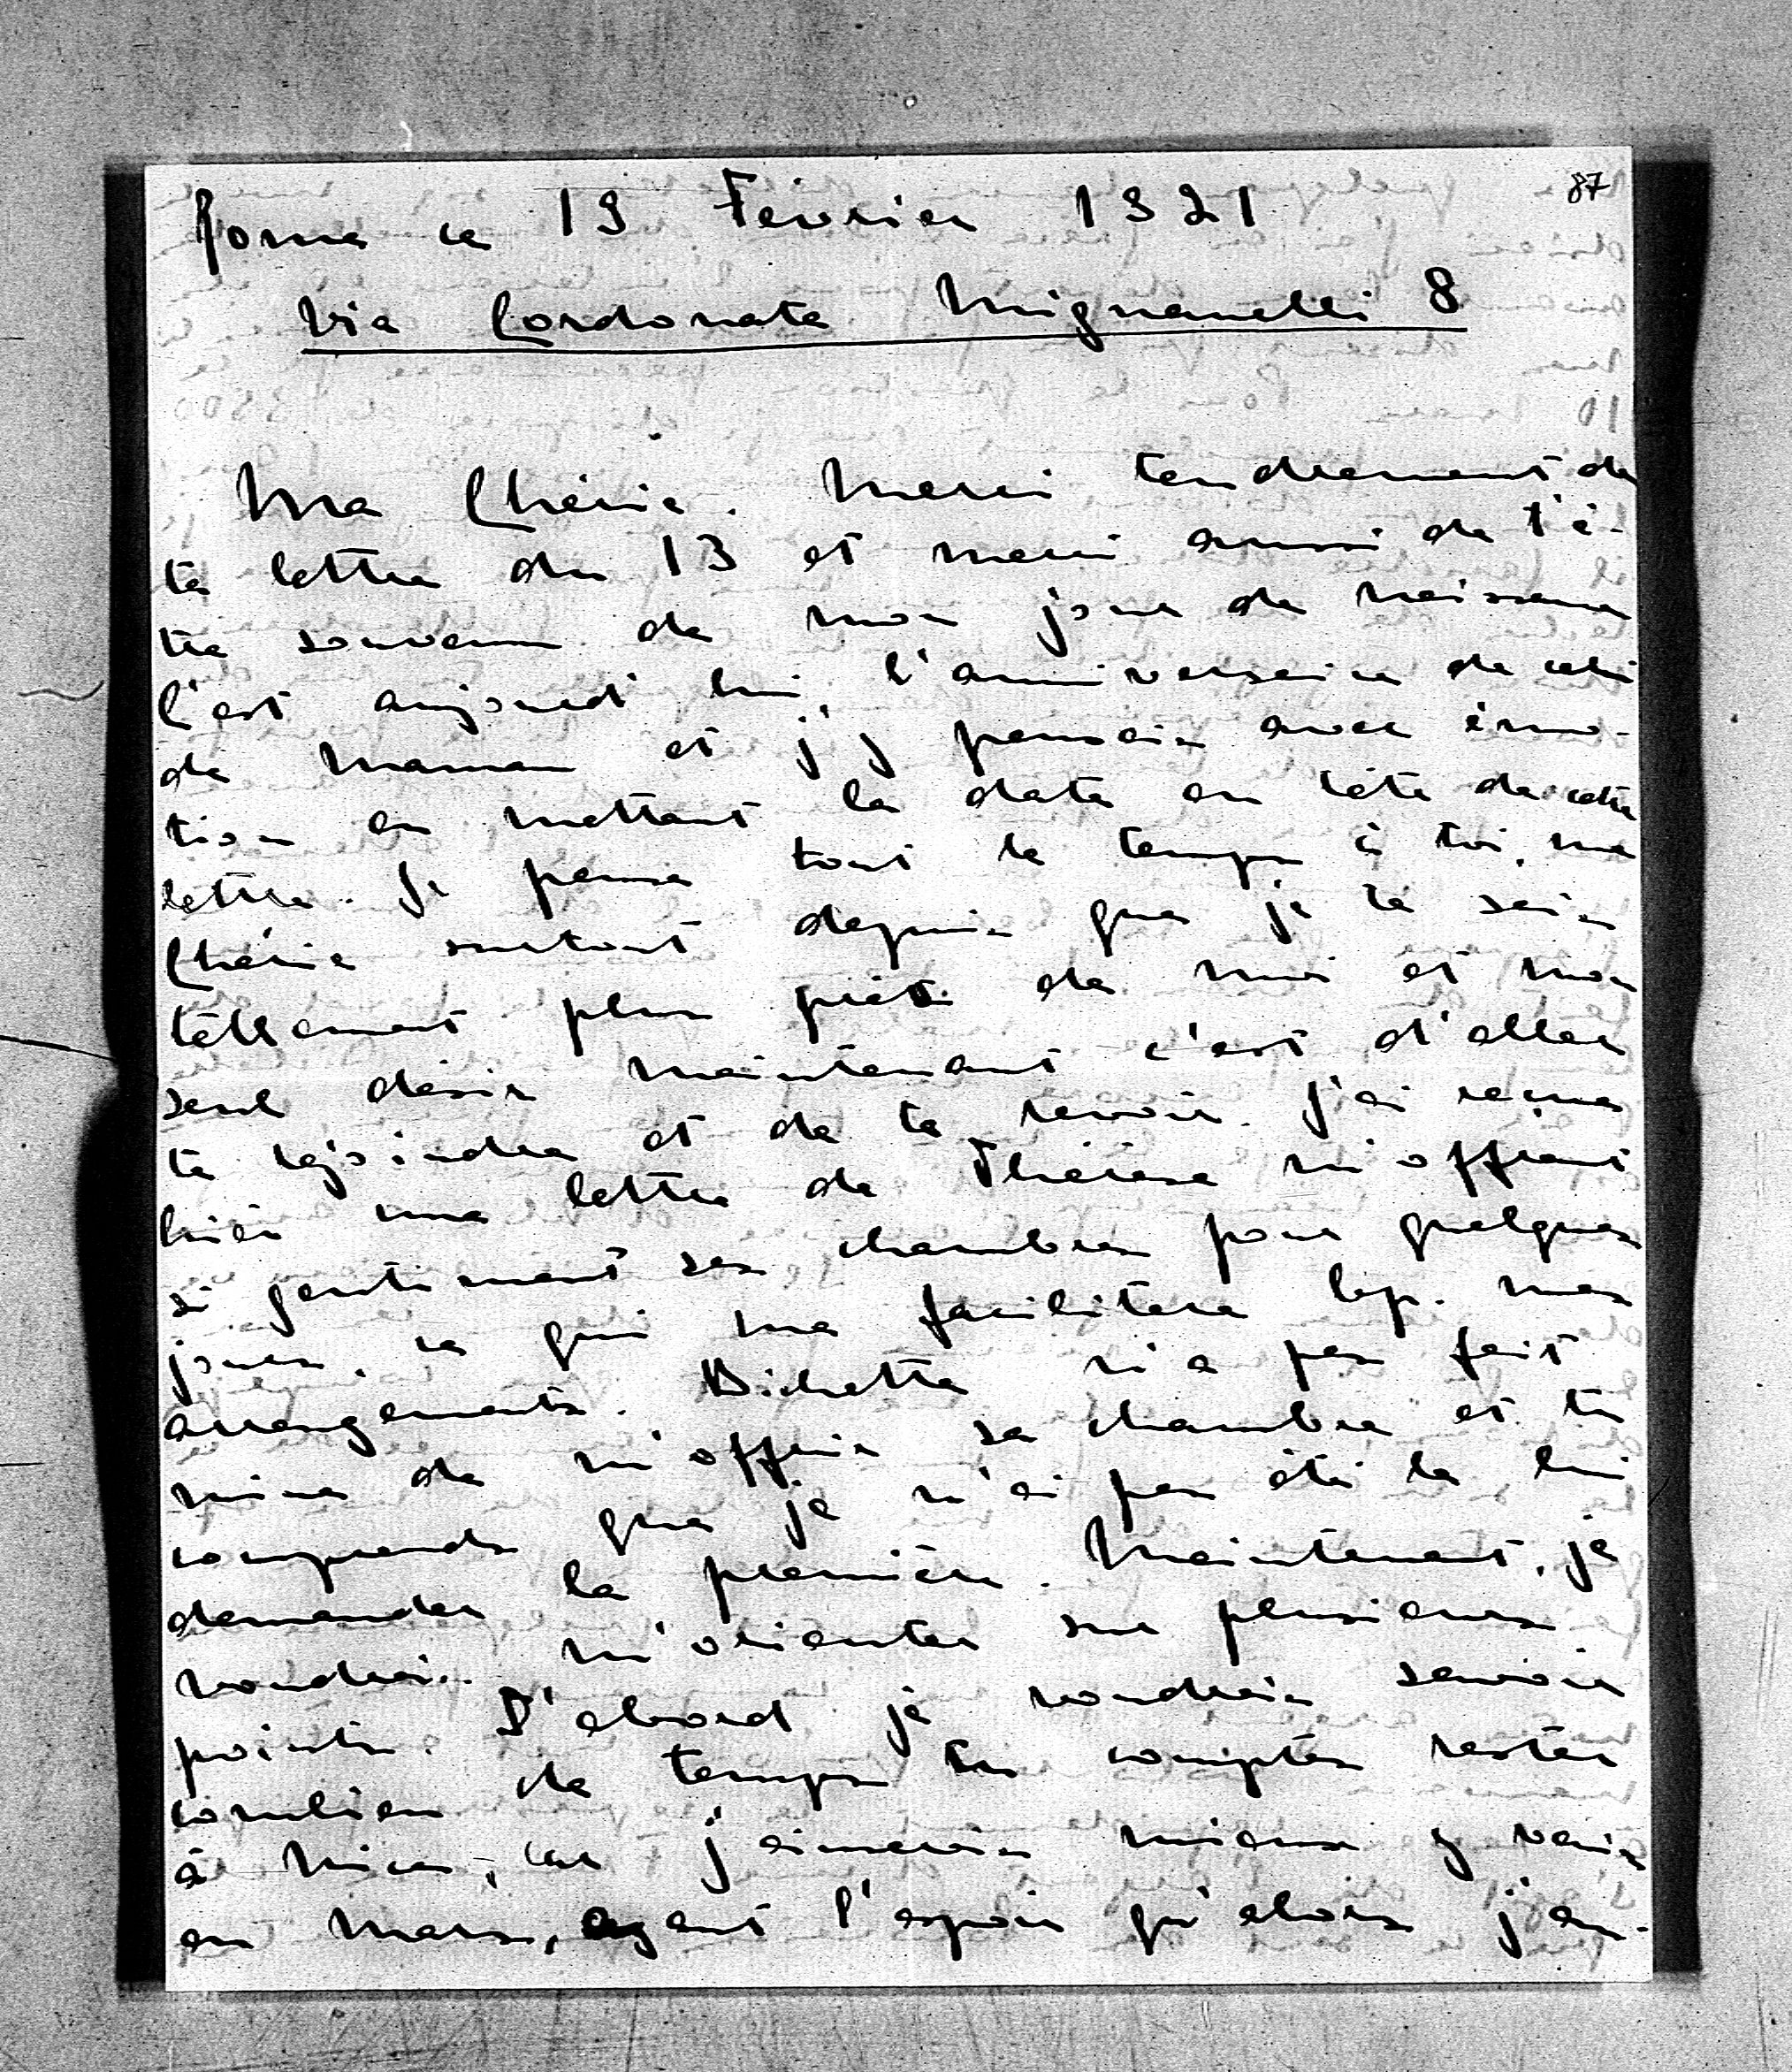 87
Rome ce 19 Février 1921
Via Cordonata Mignanelli 8
Ma Chérie. Merci tendrement de
ta lettre du 13 et merci aussi de t'ê-
tre souvenu de mon jour de naissance
C'est aujourd'hui l'anniversaire de celui
de Maman et j'y pensais avec émo-
tion en mettant la date en tête de cette
lettre. Je pense tout le temps à toi, ma
Chérie surtout depuis que je te sais
tellement plus près de moi et mon
seul désir maintenant c'est d'aller
te rejoindre et de te revoir. J'ai reçue
hier une lettre de Thérèse m'offrant
si gentiment ses chambres pour quelques
jours, ce qui me facilitera bcp. mes
arrangements. Bichette n'a pas fait
mine de m'offrir sa chambre et tu
comprends que je n'ai pas été la lui
demander la première. Maintenant, je
voudrai m'orienter sur plusieurs
points. D'abord je voudrais savoir
combien de temps tu comptes rester
à Nice, car j'aimerais mieux y venir
en Mars, ayant l'espoir qu'alors j'au-